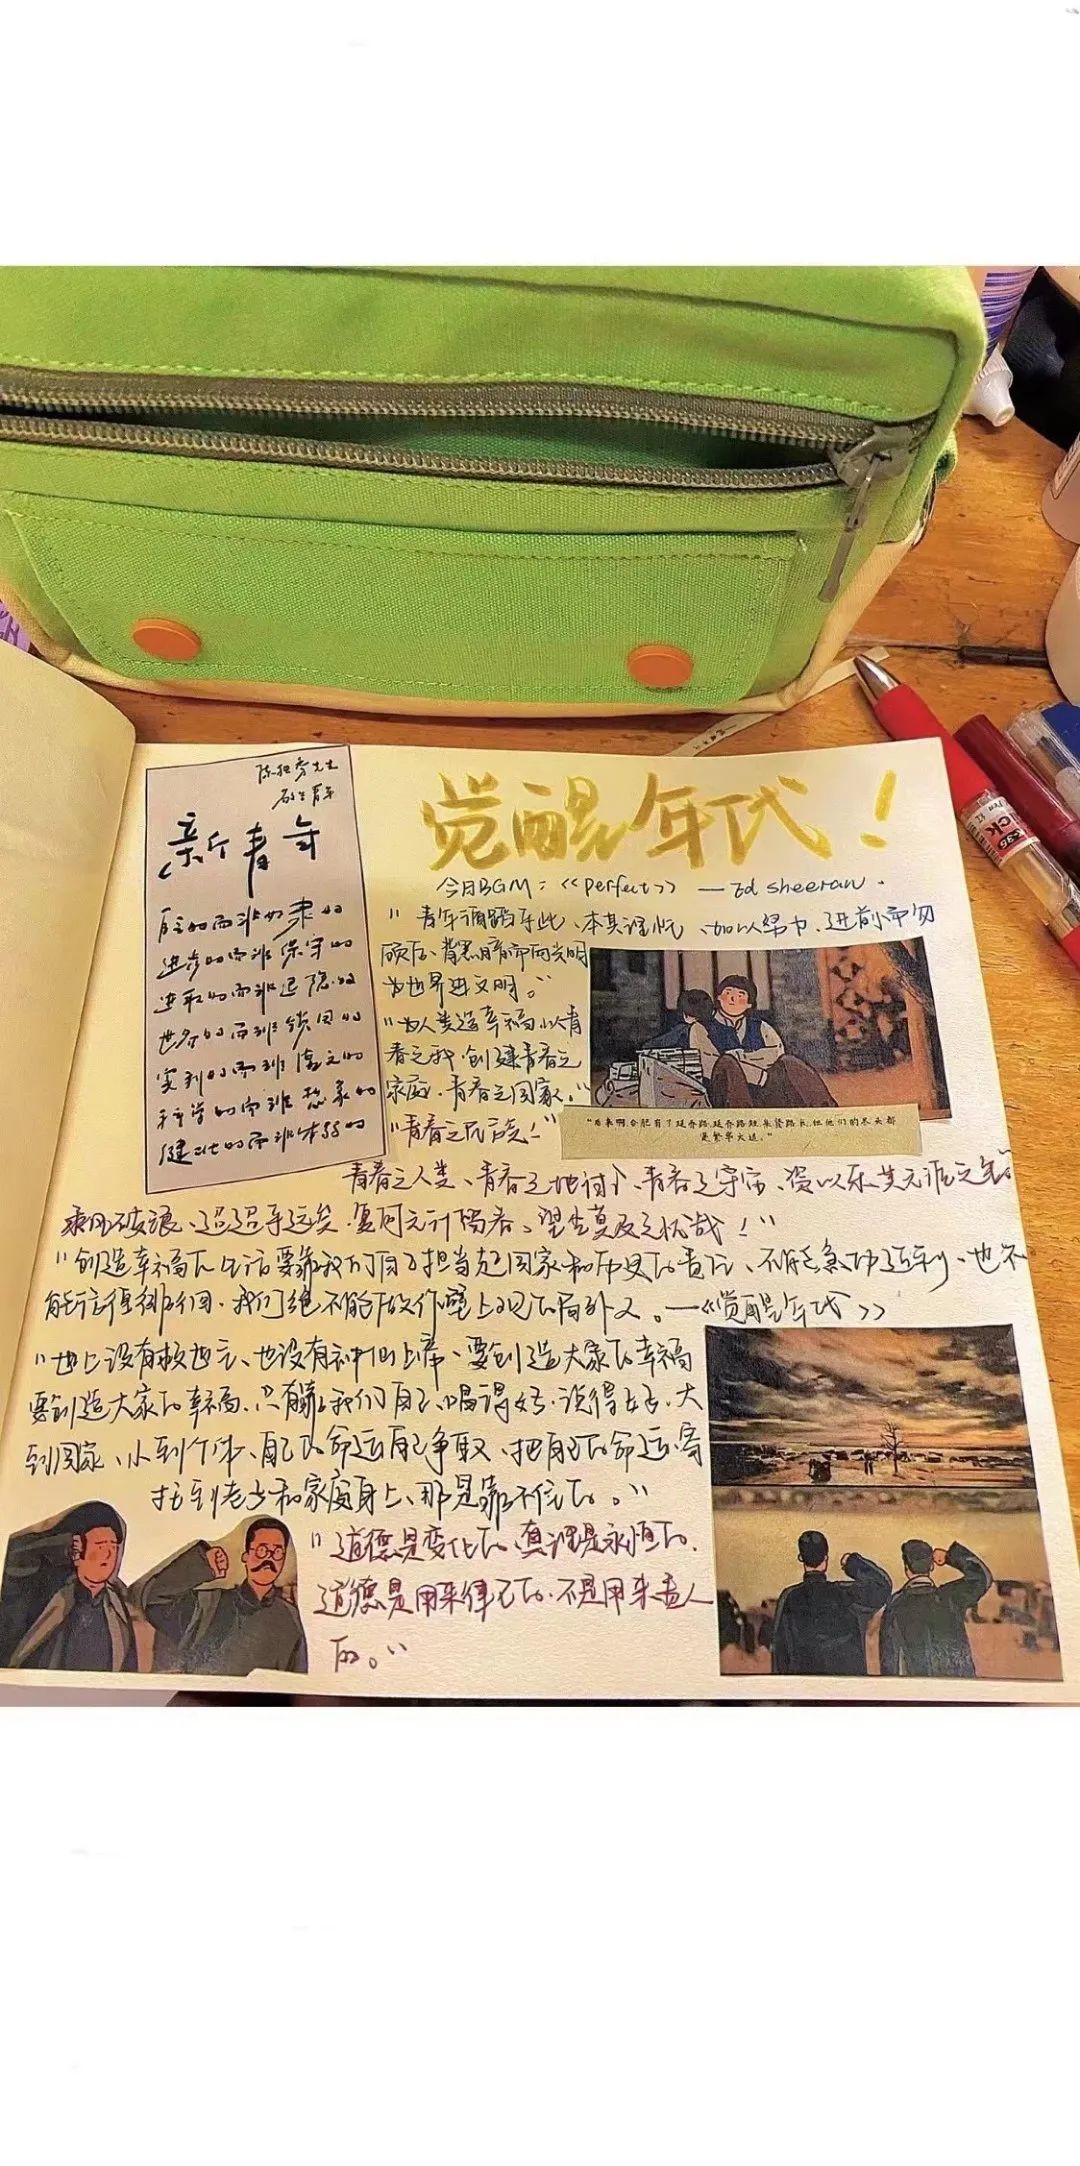 陈独秀先生
敬告青年
新青年
自主的而非奴隶的
进步的而非保守的
进取的而非退隐的
世界的而非锁国的
实利的而非虚文的
科学的而非想象的
觉醒年代!
今日BGM:《perfect》—Ed sheeran.
"青年循蹈乎此、本其理性、加以努力、进前而勿
顾后、背黑暗而向光明
为世界进文明。
"为人类造幸福,以青
春之我,创建青春之
家庭,青春之国家。"
"青春之民族!"
"后来啊,合肥有了延乔路,延乔路短,集贤路长,但他们的尽头都
是繁华大道。"
青春之人类、青春之地球、青春之宇宙、资以乐其无涯之生。
乘风破浪、迢迢乎远矣,复何无计留春、望尘莫及之忧哉!"
"创造幸福的生活要靠我们自己担当起国家和历史的责任、不能急功近利、也不
能徘徊,我们绝不能做作壁上观的局外人。—《觉醒年代》
"世上没有救世主、也没有神仙上帝、要创造大家的幸福
要创造大家的幸福、只有靠我们自己,唱得好,说得好,大
到国家、小到个体、自己的命运自己争取、把自己的命运寄
托到老乡和家庭身上、那是靠不住的。"
"道德是变化的,真理是永恒的,
道德是用来律己的,不是用来责人
的。"